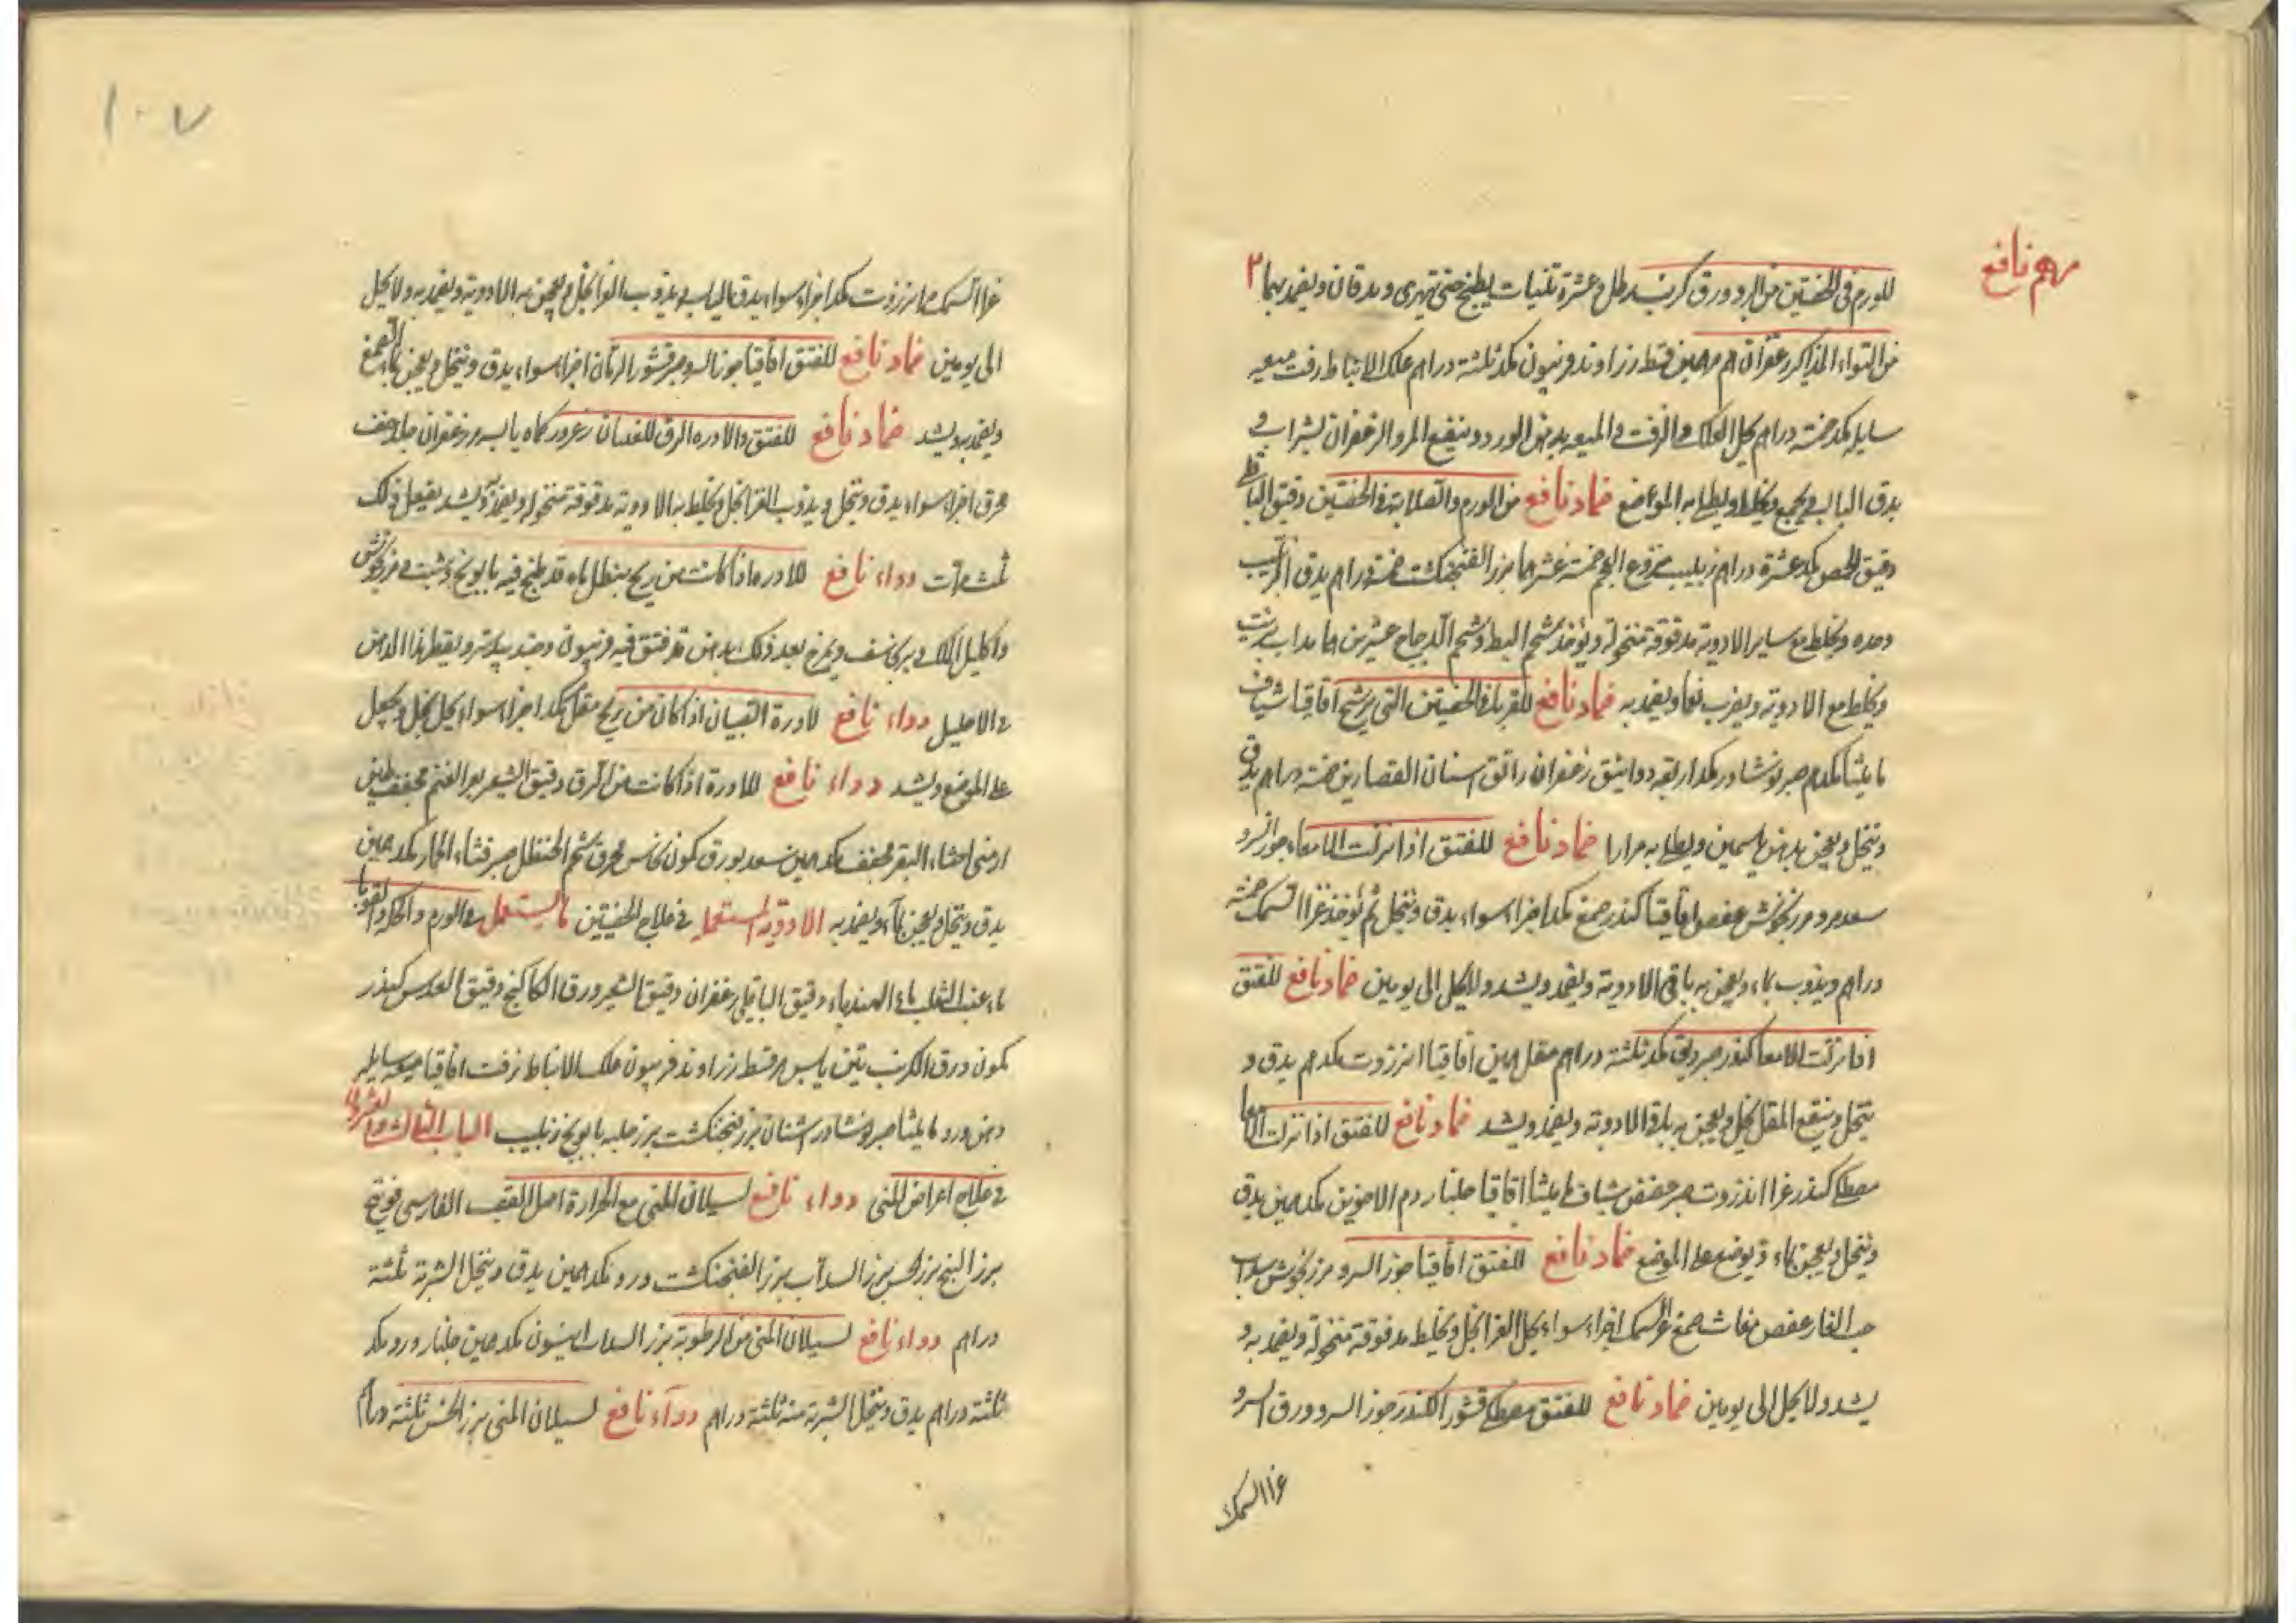 مرهم نافع
للورم في الخصيتين من البرد ورق كرنب رطل عشرة تينات يطبخ حتى تهرى ويدقان ويضمد بهما ٢
من التواء الذاكر زعفران مر درهمين قسط زراوند فربيون مكد ثلثة دراهم علك الانباط زفت ميعه
سايله مكد خمسة دراهم يحل العلك والزفت والميعه بدهن الورد وينقع المر والزعفران بشراب و
يدق الباقي ويجمع ويخلط ويطلى به المواضع ضماد نافع من الورم والصلابة في الخصيتين دقيق الباقلى
دقيق الحمص مكد عشرة دراهم زبيب منزوع العجم خمسة عشر درهما بزر الفنجنكشت خمسة دراهم يدق الزبيب
وحده ويخلط مع ساير الادوية مدقوقة منخولة ويؤخذ شحم البط وشحم الدجاج عشرين درهما يذاب بزيت
ويخلط مع الادوية ويضرب نعما ويضمد به ضماد نافع للقروح في الخصيتين التي ترشح اقاقيا شياف
ماميثا مكدرهم صبر نوشادر مكد اربعة دوانيق زعفران دانق اشنان القصارين خمسة دراهم يدق
وينخل ويعجن بدهن ياسمين ويطلى به مرارا ضماد نافع للفتق اذا نزلت الامعاء جوز السرو
سعد مر ومرزنجوش عفص اقاقيا كندر صمغ مكد اجزاء سواء يدق وينخل ثم يؤخذ غرا السمك خمسة
دراهم ويذوب بماء ويعجن به باقي الادوية ويضمد ويشد ولا يحل الى يومين ضماد نافع للفتق
اذا نزلت الامعا كندر صبر دبق مكد ثلثة دراهم مقل درهمين اقاقيا انزروت مكدرهم يدق و
ينخل وينقع المقل بخل ويعجن به باقي الادوية ويضمد ويشد ضماد نافع للفتق اذا نزلت الامعا
مصطكى كندر غرا انزروت صبر عفص شياف ماميثا اقاقيا جلنار دم الاخوين مكد درهمين يدق
وينخل ويعجن بماء ويوضع على الموضع ضماد نافع للفتق اقاقيا جوز السرو مرزنجوش سداب
حب الغار عفص مغاث صمغ غرا السمك اجزاء سواء يحل الغرا بخل ويخلط مدقوقة منخولة ويضمد به و
يشد ولا يحل الى يومين ضماد نافع للفتق مصطكى قشور الكندر جوز السرو ورق السرو
غرا السمك
١٠٧
غرا السمك انزروت مكد اجزاء سواء يدق اليابس ويذوب الغرا بخل ويعجن به الادوية ويضمد به ولا يحل
الى يومين ضماد نافع للفتق اقاقيا جوز السرو صبر قشور الرمان اجزاء سواء يدق وينخل ويعجن بماء الصمغ
ويضمد به ويشد ضماد نافع للفتق والادرة الرق للصبيان زعرور كماه يابسه مر زعفران جلد خف
محرق اجزاء سواء يدق وينخل ويذوب الغرا بخل ويخلط به الادوية مدقوقة منخولة ويضمد به ويشد يفعل ذلك
ثلث مرات دواء نافع للادرة اذا كانت من ريح ينطل بماء قد طبخ فيه بابونج وشبت ومرزنجوش
واكليل الملك وبرنجاسف ويمرخ بعد ذلك بدهن قد فتق فيه فربيون وجندبيدستر ويقطر هذا الدهن
في الاحليل دواء نافع لادرة الصبيان اذا كان من ريح مقل مكد اجزاء سواء يحل بخل ويجعل
على الموضع ويشد دواء نافع للادرة اذا كانت من الرق دقيق الشعير بعر الغنم مجفف طين
ارمني احشاء البقر مجفف مكد درهمين سعد بورق كمون نحاس محرق شحم الحنظل صبر قثاء الحمار مكد درهمين
يدق وينخل ويعجن بماء ويضمد به الادوية المستعمله في علاج الخصيتين ما يستعمل في الورم والحكة والقوبا
ماء عنب الثعلب ماء الهندباء دقيق الباقلى زعفران دقيق الشعير ورق الكاكنج دقيق العدس كندر
كمون ورق الكرنب تين يابس مر قسط زراوند فربيون علك الانباط زفت اقاقيا ميعه سايله
دهن ورد ماميثا صبر نوشادر اشنان بزر فنجنكشت بزر حلبه بابونج زبيب الباب الثالث والعشرون
في علاج اعراض المنى دواء نافع لسيلان المنى مع الحرارة اصل القصب الفارسي فوتنج
بزر البنج بزر الخس بزر السداب بزر الفنجنكشت ورد مكد درهمين يدق وينخل الشربة ثلثة
دراهم دواء نافع لسيلان المنى من الرطوبة بزر السداب انيسون مكد درهمين جلنار ورد مكد
ثلثة دراهم يدق وينخل الشربة منه ثلثة دراهم دواء نافع لسيلان المنى بزر الخس ثلثة دراهم